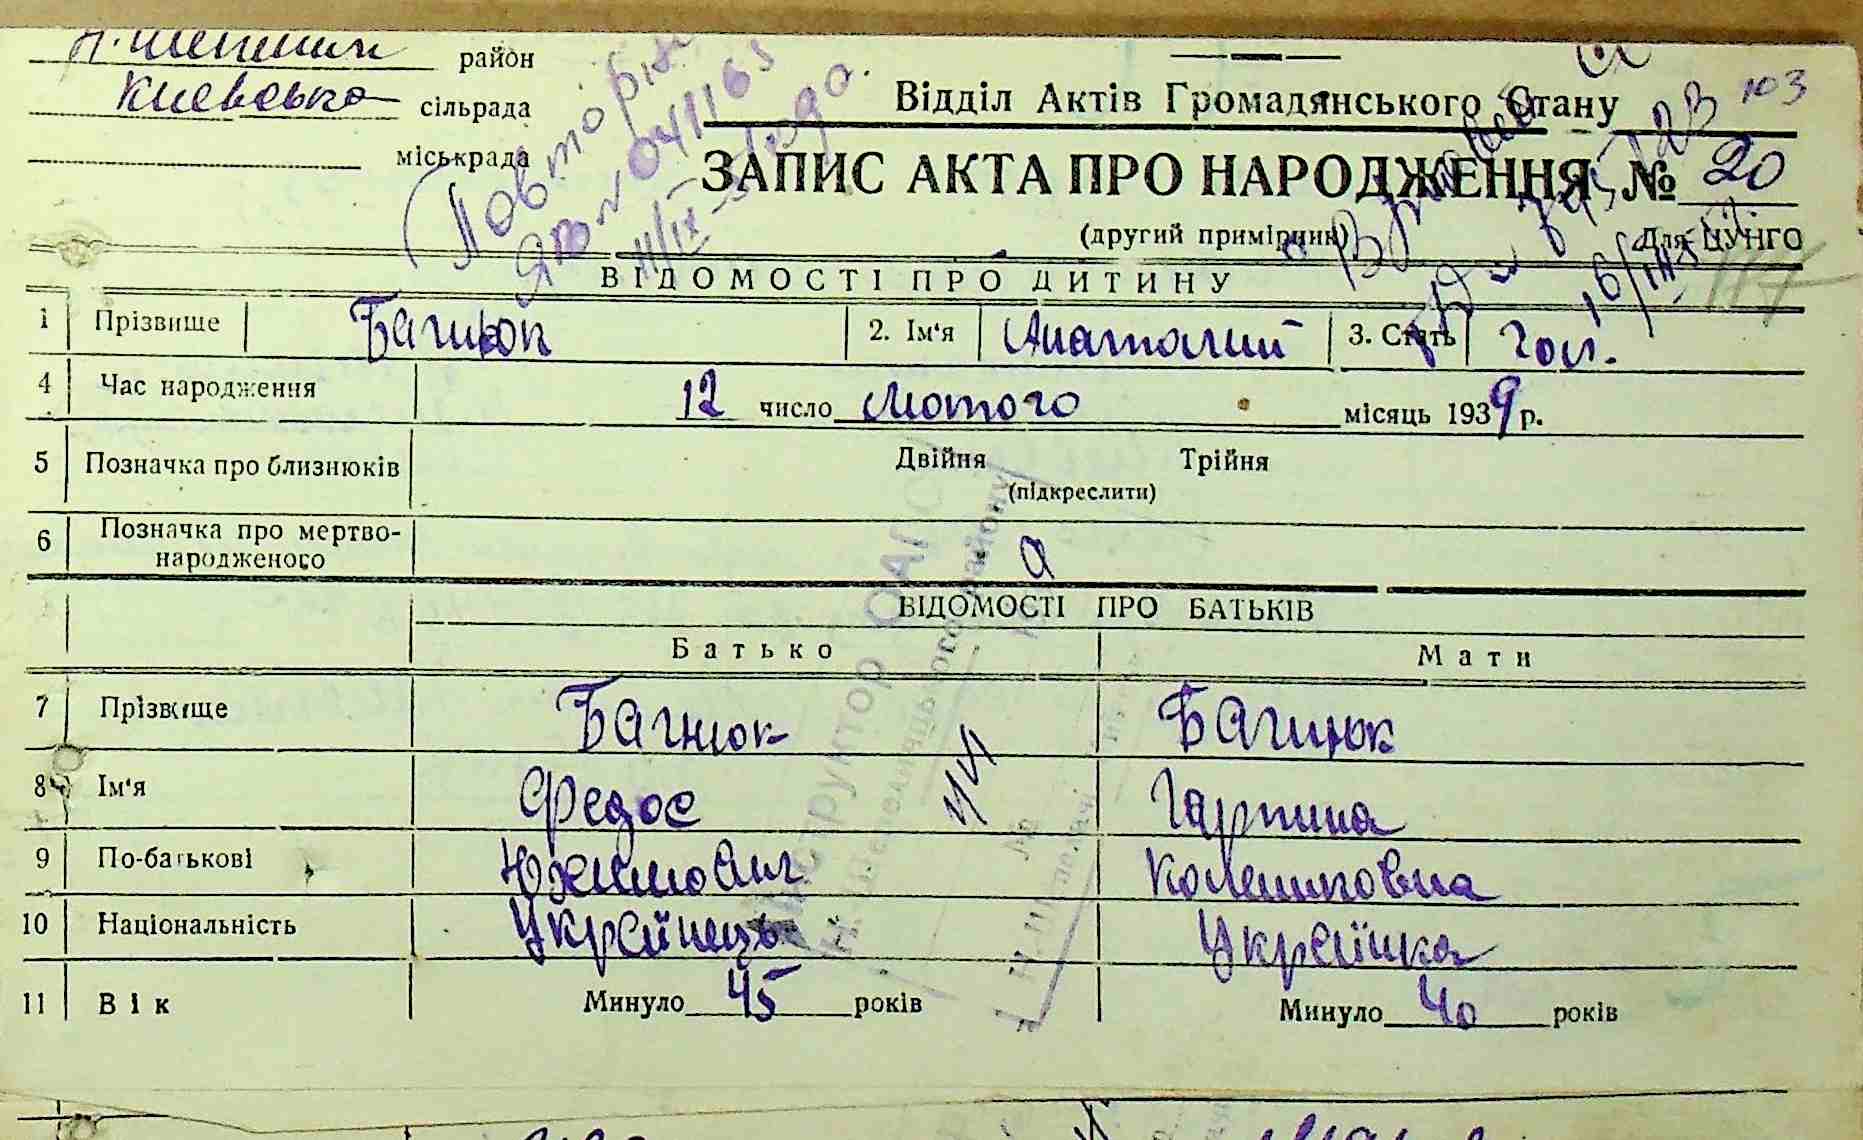 район
Киевсько сільрада
міськрада
Повторне
Відділ Актів Громадянського Стану
103
ЗАПИС АКТА ПРО НАРОДЖЕННЯ № 20
(другий примірник) Для ЦУНГО
ВІДОМОСТІ ПРО ДИТИНУ
1 Прізвище Багнюк 2. Ім‘я Анатолий 3. Стать Чол.
4 Час народження 12 число Лютого місяць 1939 р.
5 Позначка про близнюків Двійня Трійня
(підкреслити)
6 Позначка про мертво-
народженого
ВІДОМОСТІ ПРО БАТЬКІВ
Батько Мати
7 Прізвище Багнюк Багнюк
8 Ім‘я Федос Гарпина
9 По-батькові Юхимович
10 Національність Українець Українка
11 Вік Минуло 45 років Минуло 40 років